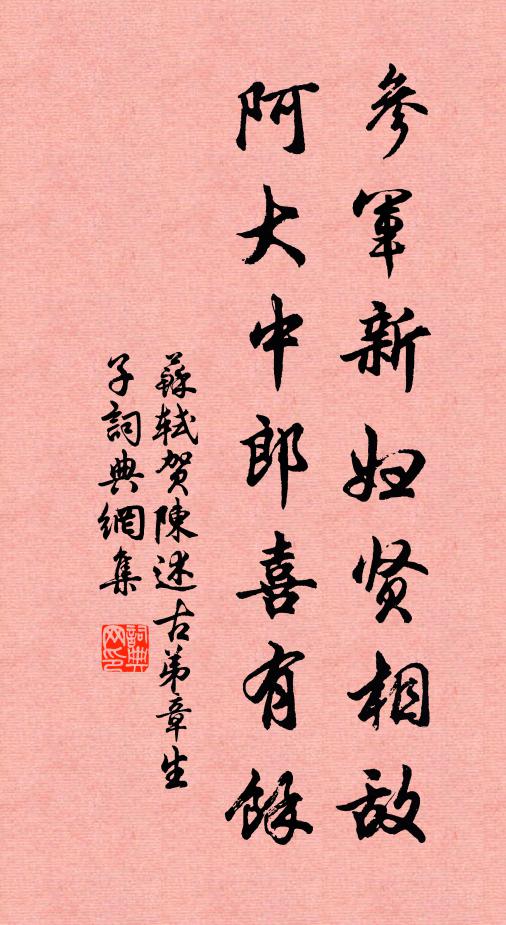 參軍新妇贤相敌
阿大中郎喜有餘
蘇轼贺陳述古弟章生
子詞典網集
詞典
网印